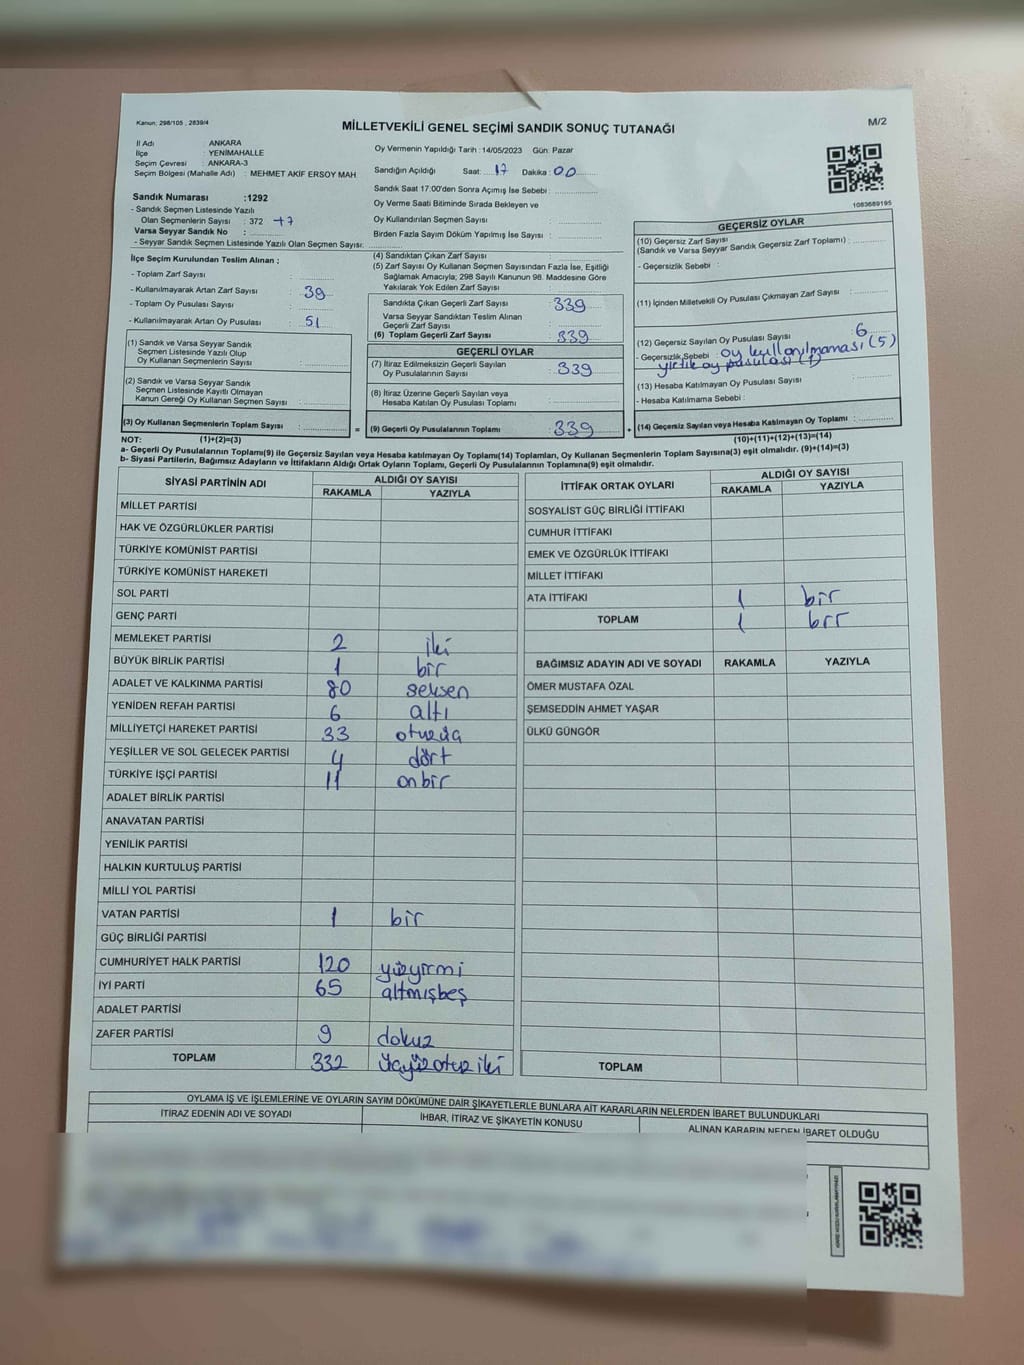 Kanun: 298/105 , 2839/4
MİLLETVEKİLİ GENEL SEÇİMİ SANDIK SONUÇ TUTANAĞI
M/2
İl Adı : ANKARA
İlçe : YENİMAHALLE
Seçim Çevresi : ANKARA-3
Seçim Bölgesi (Mahalle Adı) : MEHMET AKİF ERSOY MAH
Sandık Numarası :1292
- Sandık Seçmen Listesinde Yazılı
Olan Seçmenlerin Sayısı : 372 +7
Varsa Seyyar Sandık No :
- Seyyar Sandık Seçmen Listesinde Yazılı Olan Seçmen Sayısı:
İlçe Seçim Kurulundan Teslim Alınan ;
- Toplam Zarf Sayısı :
- Kullanılmayarak Artan Zarf Sayısı : 39
- Toplam Oy Pusulası Sayısı :
- Kullanılmayarak Artan Oy Pusulası : 51
(1) Sandık ve Varsa Seyyar Sandık
Seçmen Listesinde Yazılı Olup
Oy Kullanan Seçmenlerin Sayısı :
(2) Sandık ve Varsa Seyyar Sandık
Seçmen Listesinde Kayıtlı Olmayan
Kanun Gereği Oy Kullanan Seçmen Sayısı :
(3) Oy Kullanan Seçmenlerin Toplam Sayısı :
Oy Vermenin Yapıldığı Tarih : 14/05/2023 Gün: Pazar
Sandığın Açıldığı Saat: 17 Dakika : 00
Sandık Saat 17:00'den Sonra Açımış İse Sebebi :
Oy Verme Saati Bitiminde Sırada Bekleyen ve
Oy Kullandırılan Seçmen Sayısı :
Birden Fazla Sayım Döküm Yapılmış İse Sayısı :
(4) Sandıktan Çıkan Zarf Sayısı :
(5) Zarf Sayısı Oy Kullanan Seçmen Sayısından Fazla İse, Eşitliği
Sağlamak Amacıyla; 298 Sayılı Kanunun 98. Maddesine Göre
Yakılarak Yok Edilen Zarf Sayısı :
Sandıkta Çıkan Geçerli Zarf Sayısı : 339
Varsa Seyyar Sandıktan Teslim Alınan
Geçerli Zarf Sayısı :
(6) Toplam Geçerli Zarf Sayısı : 339
GEÇERLİ OYLAR
(7) İtiraz Edilmeksizin Geçerli Sayılan
Oy Pusulalarının Sayısı : 339
(8) İtiraz Üzerine Geçerli Sayılan veya
Hesaba Katılan Oy Pusulası Toplamı :
= (9) Geçerli Oy Pusulalarının Toplamı : 339 +
1083689195
GEÇERSİZ OYLAR
(10) Geçersiz Zarf Sayısı
(Sandık ve Varsa Seyyar Sandık Geçersiz Zarf Toplamı) :
- Geçersizlik Sebebi :
(11) İçinden Milletvekili Oy Pusulası Çıkmayan Zarf Sayısı :
(12) Geçersiz Sayılan Oy Pusulası Sayısı : 6
- Geçersizlik Sebebi : oy kullanılmaması (5)
yırtık oy pusulası (1)
(13) Hesaba Katılmayan Oy Pusulası Sayısı :
- Hesaba Katılmama Sebebi :
(14) Geçersiz Sayılan veya Hesaba Katılmayan Oy Toplamı :
NOT: (1)+(2)=(3) (10)+(11)+(12)+(13)=(14)
a- Geçerli Oy Pusulalarının Toplamı(9) ile Geçersiz Sayılan veya Hesaba katılmayan Oy Toplamı(14) Toplamları, Oy Kullanan Seçmenlerin Toplam Sayısına(3) eşit olmalıdır. (9)+(14)=(3)
b- Siyasi Partilerin, Bağımsız Adayların ve İttifakların Aldığı Ortak Oyların Toplamı, Geçerli Oy Pusulalarının Toplamına(9) eşit olmalıdır.
SİYASİ PARTİNİN ADI ALDIĞI OY SAYISI
RAKAMLA YAZIYLA
MİLLET PARTİSİ
HAK VE ÖZGÜRLÜKLER PARTİSİ
TÜRKİYE KOMÜNİST PARTİSİ
TÜRKİYE KOMÜNİST HAREKETİ
SOL PARTİ
GENÇ PARTİ
MEMLEKET PARTİSİ 2 iki
BÜYÜK BİRLİK PARTİSİ 1 bir
ADALET VE KALKINMA PARTİSİ 80 seksen
YENİDEN REFAH PARTİSİ 6 altı
MİLLİYETÇİ HAREKET PARTİSİ 33 otuzüç
YEŞİLLER VE SOL GELECEK PARTİSİ 4 dört
TÜRKİYE İŞÇİ PARTİSİ 11 onbir
ADALET BİRLİK PARTİSİ
ANAVATAN PARTİSİ
YENİLİK PARTİSİ
HALKIN KURTULUŞ PARTİSİ
MİLLİ YOL PARTİSİ
VATAN PARTİSİ 1 bir
GÜÇ BİRLİĞİ PARTİSİ
CUMHURİYET HALK PARTİSİ 120 yüzyirmi
İYİ PARTİ 65 altmışbeş
ADALET PARTİSİ
ZAFER PARTİSİ 9 dokuz
TOPLAM 332 üçyüzotuziki
İTTİFAK ORTAK OYLARI ALDIĞI OY SAYISI
RAKAMLA YAZIYLA
SOSYALİST GÜÇ BİRLİĞİ İTTİFAKI
CUMHUR İTTİFAKI
EMEK VE ÖZGÜRLÜK İTTİFAKI
MİLLET İTTİFAKI
ATA İTTİFAKI 1 bir
TOPLAM 1 bir
BAĞIMSIZ ADAYIN ADI VE SOYADI RAKAMLA YAZIYLA
ÖMER MUSTAFA ÖZAL
ŞEMSEDDİN AHMET YAŞAR
ÜLKÜ GÜNGÖR
TOPLAM
OYLAMA İŞ VE İŞLEMLERİNE VE OYLARIN SAYIM DÖKÜMÜNE DAİR ŞİKAYETLERLE BUNLARA AİT KARARLARIN NELERDEN İBARET BULUNDUKLARI
İTİRAZ EDENİN ADI VE SOYADI İHBAR, İTİRAZ VE ŞİKAYETİN KONUSU ALINAN KARARIN NEDEN İBARET OLDUĞU